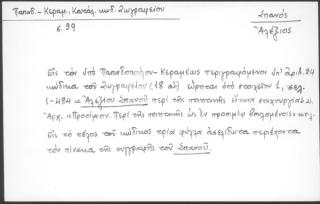 Παπαδ.-Κεραμ., Κατάλ. κωδ. Ζωγραφείου
Σπανός
Ἀλέξιος
σ. 39
Εἰς τὸν ὑπὸ Παπαδοπούλου-Κεραμέως περιγραφόμενον ὑπ' ἀριθ. 24
κώδικα τοῦ Ζωγραφείου (18 αἰ) ὑπὸ στοιχεῖον 1, σελ.
1-484 « Ἀλεξίου Σπανοῦ περὶ τῆς ποιητικῆς
Ἀρχ. « Προοίμιον. Περὶ τῆς ποιητικῆς ὡς ἐν προοιμίῳ κτλ.
Εἰς τὸ τέλος τοῦ κώδικος τρία φύλλα ἀσελίδωτα περιέχοντα
τὸν πίνακα τῆς συγγραφῆς τοῦ Σπανοῦ.